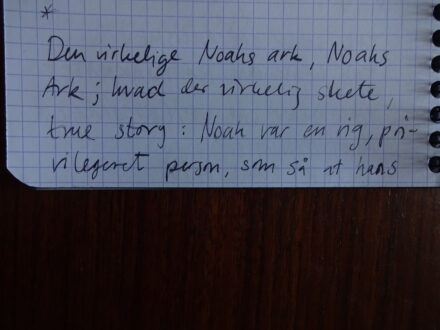 *
Den virkelige Noahs ark, Noahs
Ark; hvad der virkelig skete,
true story: Noah var en rig, pri-
vilegeret person, som så at hans